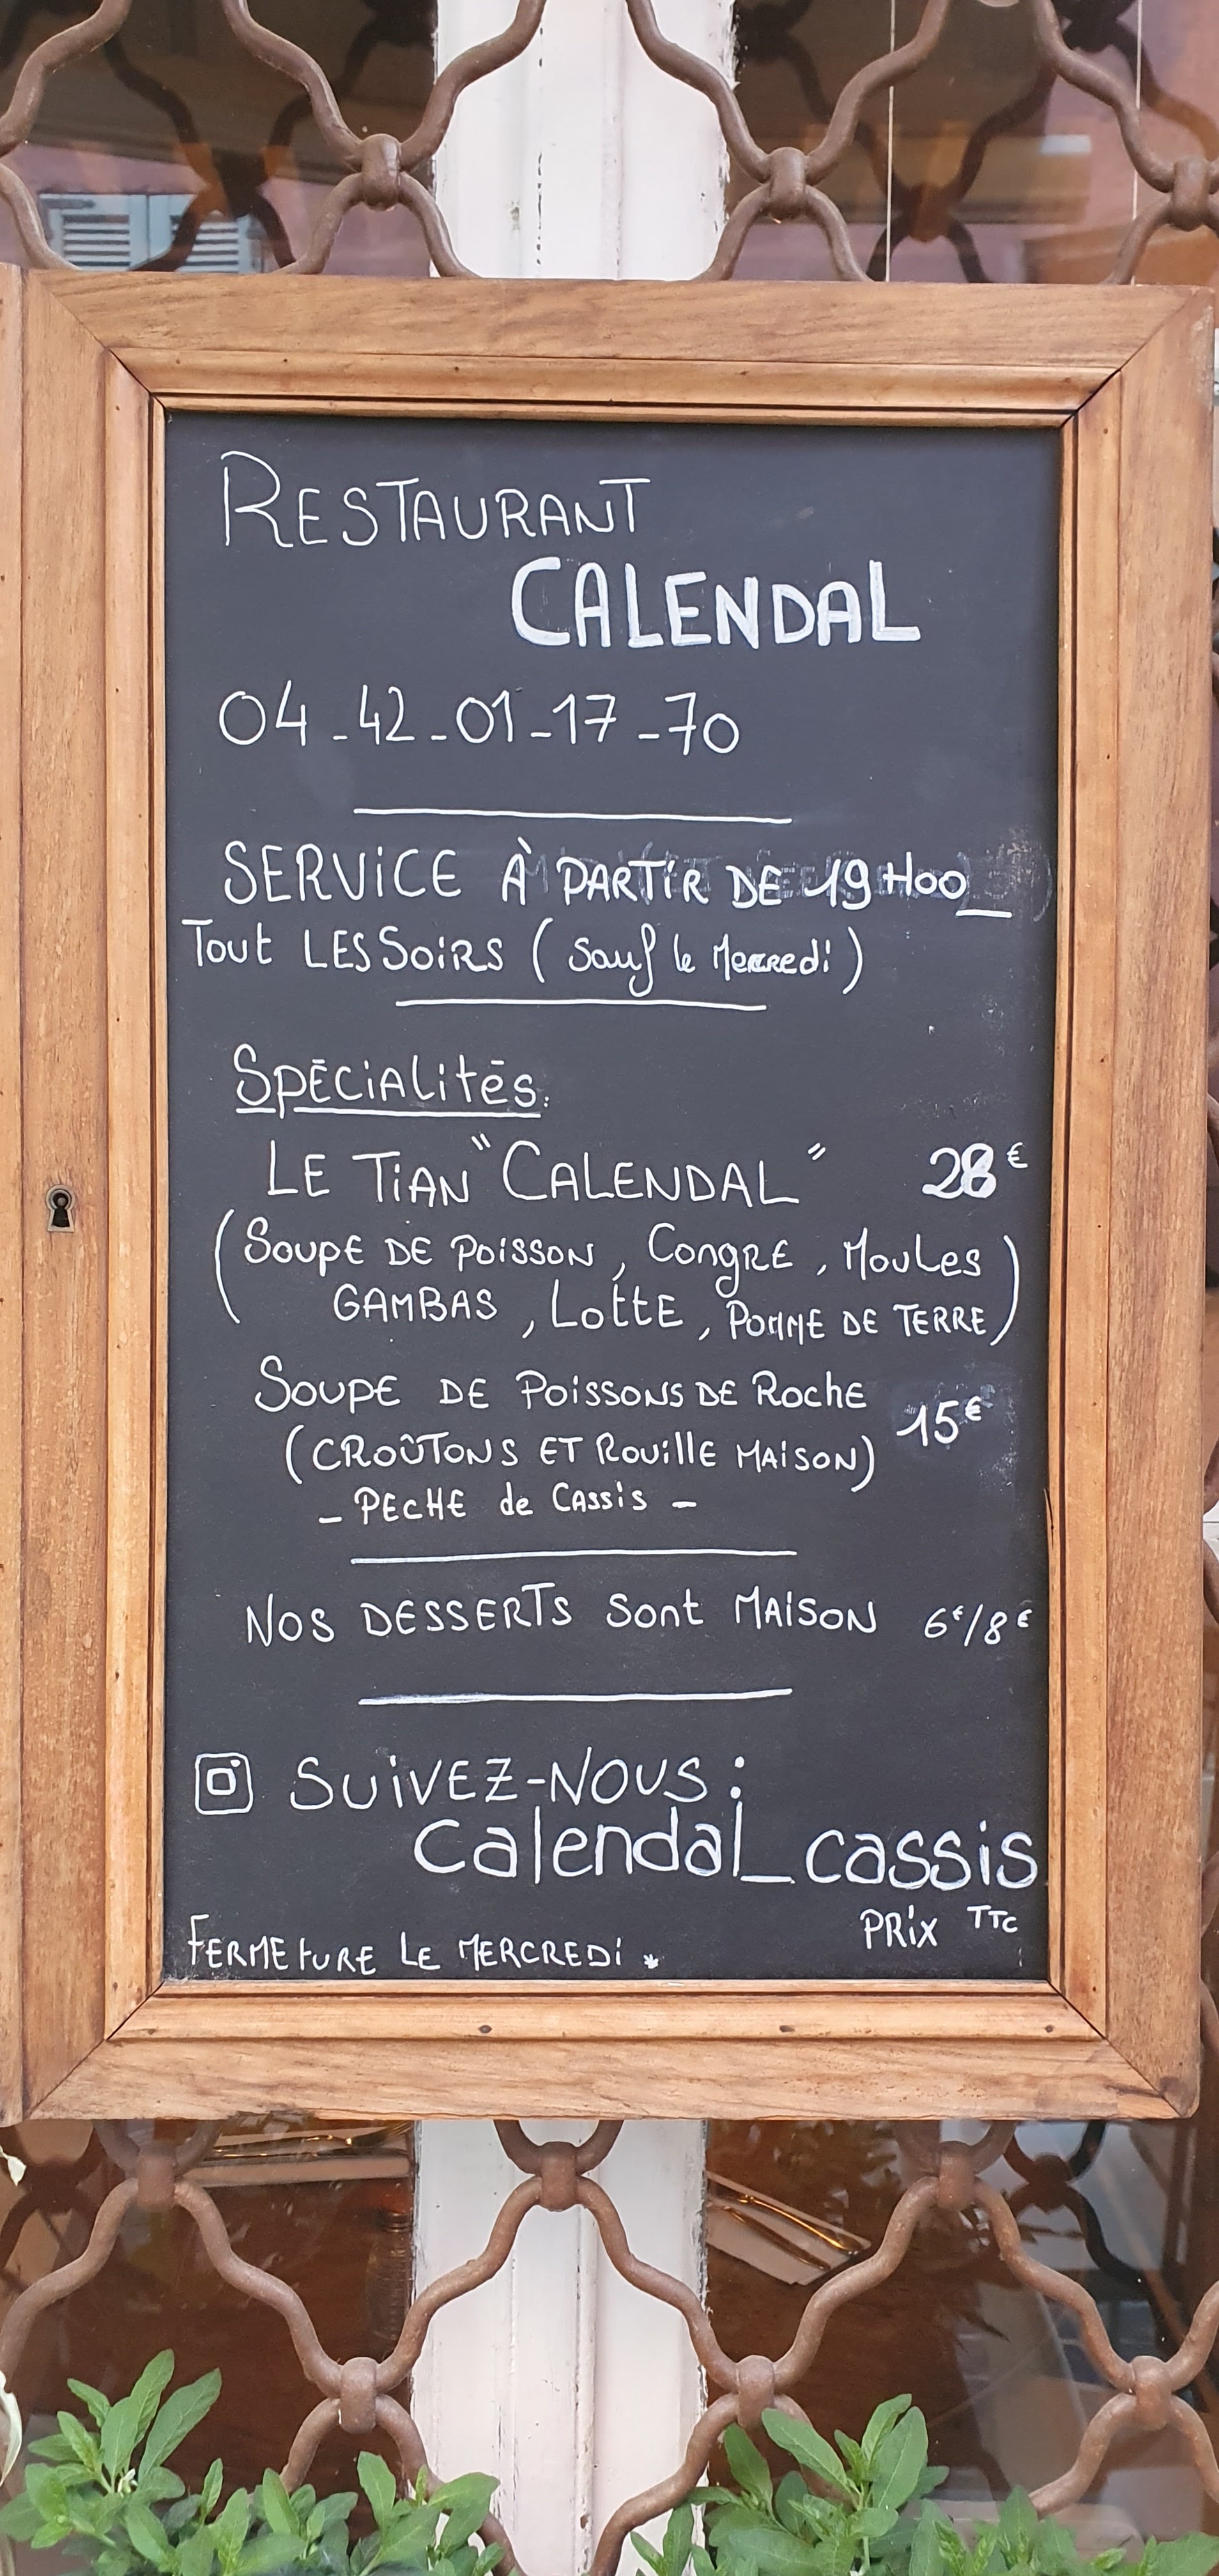 RESTAURANT
CALENDAL
04-42-01-17-70
SERVICE À PARTIR DE 19H00_
Tout LES SOIRS (Sauf le Mercredi)
Spécialités:
LE TIAN "CALENDAL" 28€
(SOUPE DE POISSON, CONGRE, MOULES
GAMBAS, LOTTE, POMME DE TERRE)
SOUPE DE POISSONS DE ROCHE 15€
(CROÛTONS ET ROUILLE MAISON)
- PECHE de CASSIS -
NOS DESSERTS Sont MAISON 6€/8€
SUIVEZ-NOUS:
calendal_cassis
PRIX TTC
FERMETURE LE MERCREDI *